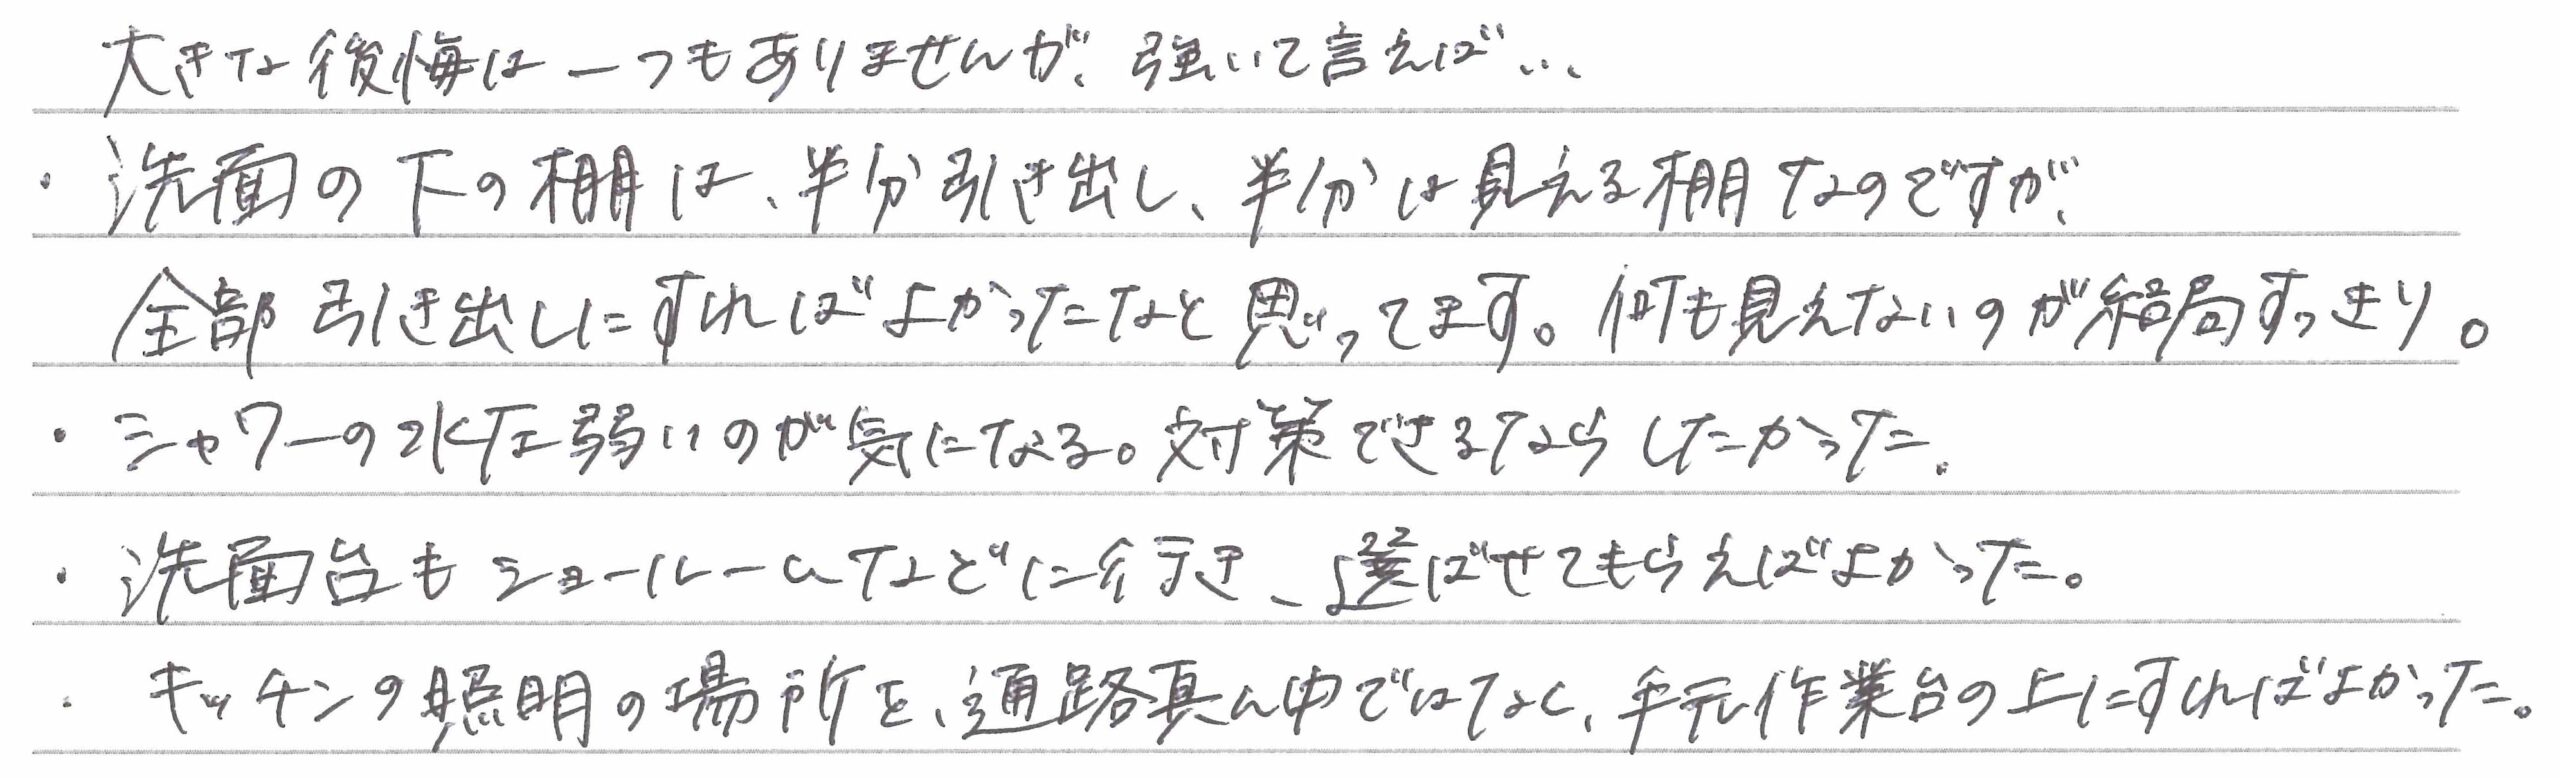 大きな後悔は一つもありませんが、強いて言えば…
・洗面の下の棚は、半分引き出し、半分は見える棚なのですが、
全部引き出しにすればよかったなと思ってます。何も見えないのが結局すっきり。
・シャワーの水圧弱いのが気になる。対策できるならしたかった。
・洗面台もショールームなどに行き、選ばせてもらえばよかった。
・キッチンの照明の場所を、通路真ん中ではなく、手元作業台の上にすればよかった。